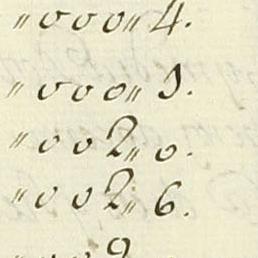 "000"4.
"000"9.
"002"0.
"002"6.